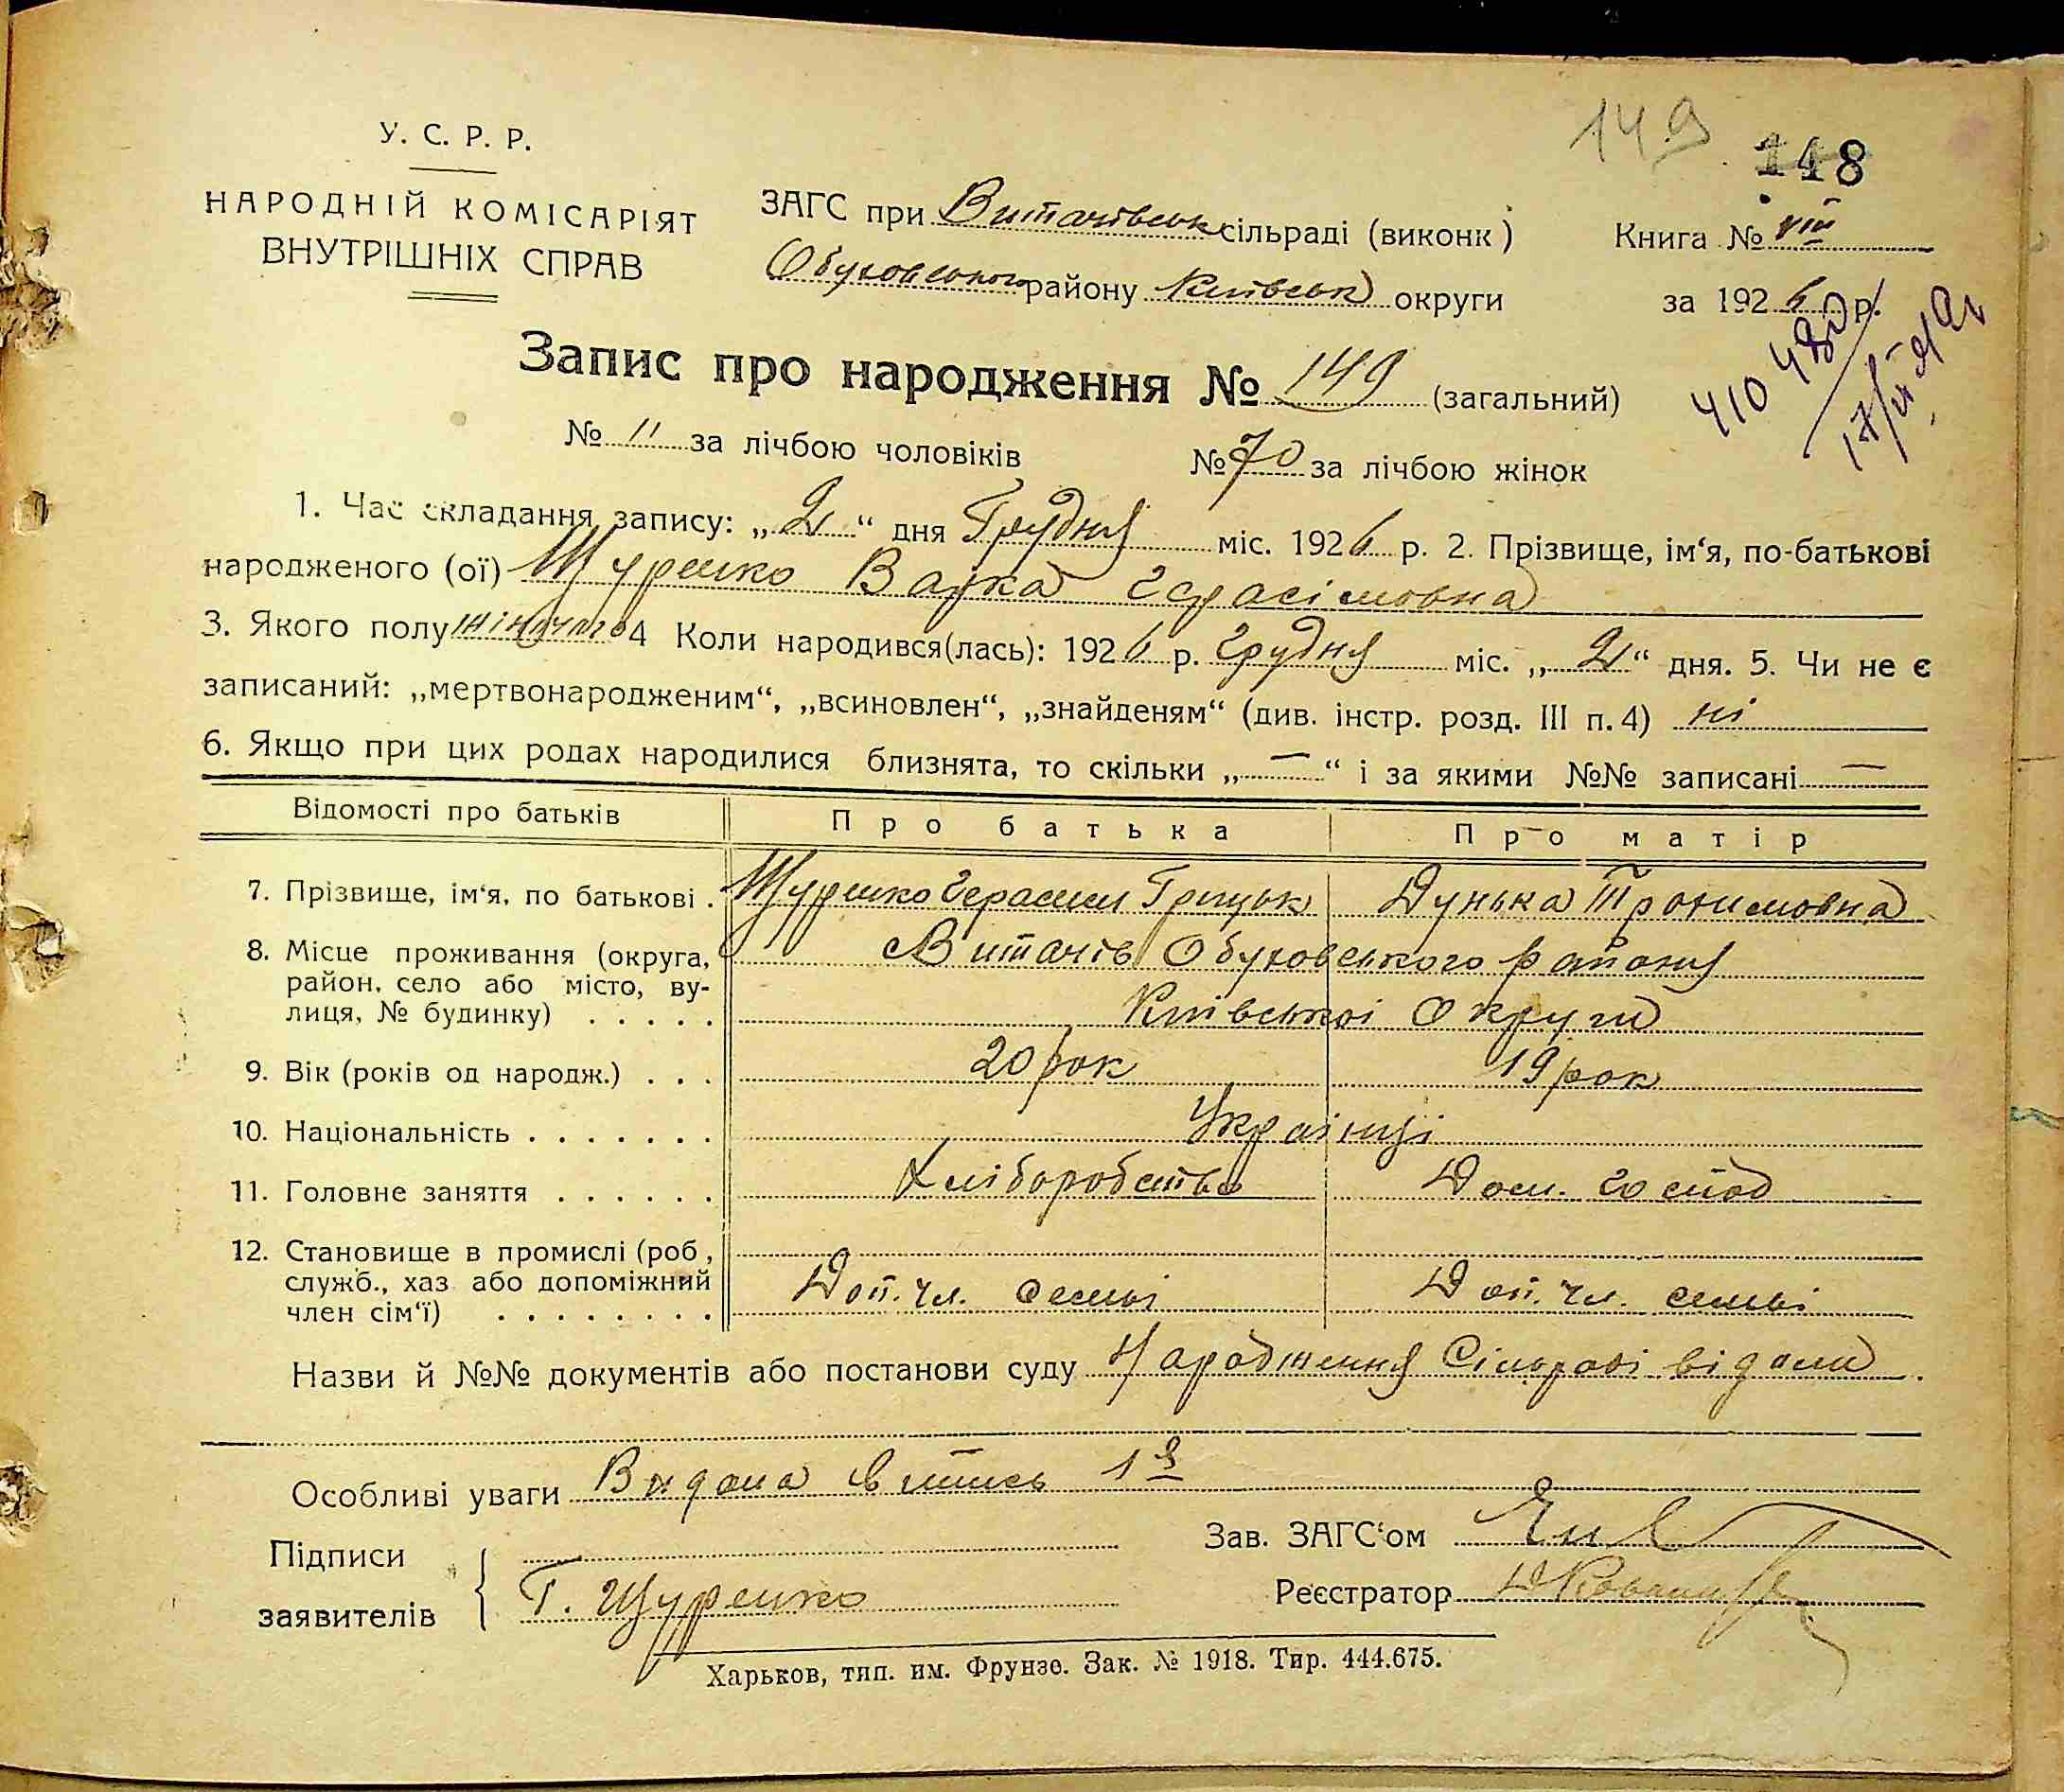 149
148
У. С. Р. Р.
НАРОДНІЙ КОМІСАРІЯТ
ВНУТРІШНІХ СПРАВ
ЗАГС при Витачівськ сільраді (виконк)
Обуховського району Київськ округи
Книга № VIII
за 1926 р.
Запис про народження № 149 (загальний)
№ " за лічбою чоловіків № 70 за лічбою жінок
1. Час складання запису: „2“ дня Грудня міс. 1926 р. 2. Прізвище, ім‘я, по-батькові
народженого (ої) Щуренко Варка Герасімовна
3. Якого полу жіночого 4 Коли народився(лась): 1926 р. Грудня міс. „2“ дня. 5. Чи не є
записаний: „мертвонародженим“, „всиновлен“, „знайденям“ (див. інстр. розд. III п. 4) ні
6. Якщо при цих родах народилися близнята, то скільки „—“ і за якими №№ записані —
Відомості про батьків Про батька Про матір
7. Прізвище, ім‘я, по батькові . Щуренко Герасим Грицьк Дунька Трохимовна
8. Місце проживання (округа, с Витачів Обуховського району
район, село або місто, ву-
лиця, № будинку) . . . . . Київської Округи
9. Вік (років од народж.) . . . 20 рок 19 рок
10. Національність . . . . . . . Українці
11. Головне заняття . . . . . . Хліборобство Дом. господ
12. Становище в промислі (роб,
служб., хаз. або допоміжний Доп. чл. семьі Доп. чл. семьі
член сім‘ї) . . . . . . . .
Назви й №№ документів або постанови суду Народження Сільраді відоми
Особливі уваги Видана витись
Підписи
заявителів Г. Щуренко
Зав. ЗАГС‘ом
Реєстратор
Харьков, тип. им. Фрунзе. Зак. № 1918. Тир. 444.675.